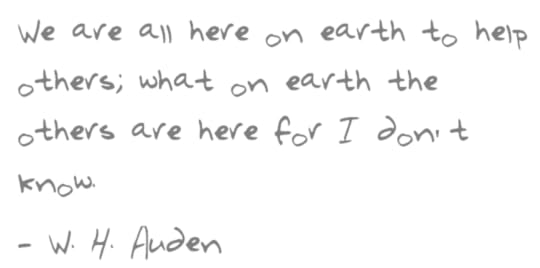 We are all here on earth to help
others; what on earth the
others are here for I don't
know.
- W. H. Auden